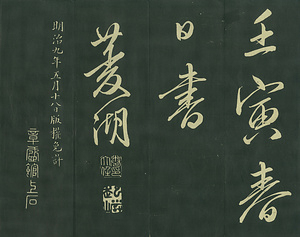 壬寅春
日書
菱湖
明治九年五月十八日版權免許